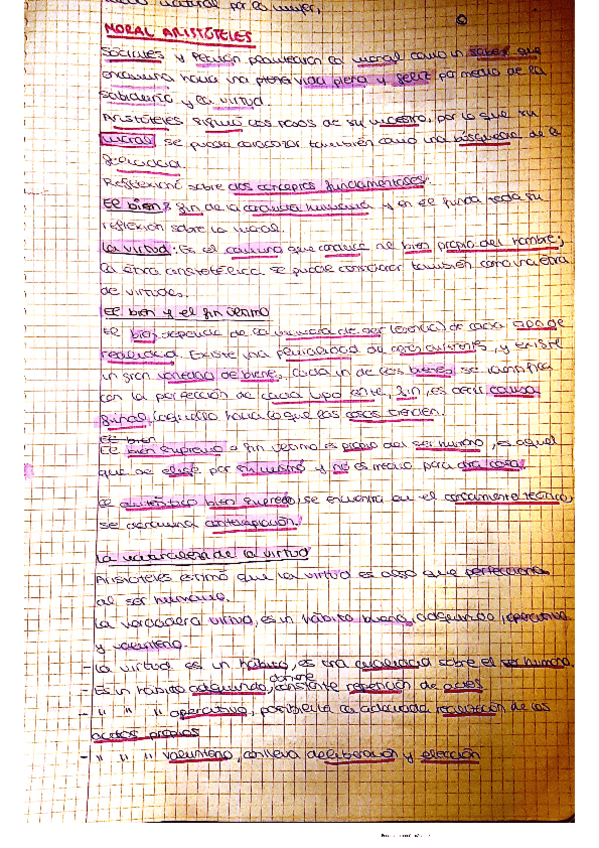 natural por la mujer,
MORAL ARISTÓTELES
Sócrates y Platón plantearon la moral como un saber que
encamina hacia una plena vida plena y feliz por medio de la
sabiduría y la virtud.
Aristóteles siguió los pasos de su maestro, por lo que su
moral se puede considerar también como una búsqueda de la
felicidad
Reflexionó sobre dos conceptos fundamentales:
El bien: fin de la conducta humana y en él funda toda su
reflexión sobre la moral.
La virtud: Es el camino que conduce al bien propio del hombre,
la ética aristotélica se puede considerar también como una ética
de virtudes.
El bien y el fin último
El bien depende de la manera de ser (esencia) de cada
realidad. Existe una pluralidad de , y existe
un gran de bienes, cada un de los bienes se identifica
con la perfección de cada tipo ente, fin, es decir causa
final, aquello hacia lo que las cosas tienden.
El bien
El bien supremo o fin último es propio del ser humano, es aquel
que se elige por si mismo y no es medio para otra cosa.
El auténtico bien supremo, se encuentra en el ,
se denomina contemplación.
La naturaleza de la virtud
Aristóteles estimó que la virtud es algo que perfecciona
al ser humano.
La verdadera virtud, es un hábito bueno, adquirido, operativo
y voluntario.
- La virtud es un hábito, es una cualidad sobre el ser humano.
- Es un hábito adquirido, constante repetición de actos
- " " " operativo, posibilita la adecuada realización de los
actos propios
- " " " voluntario, conlleva deliberación y elección